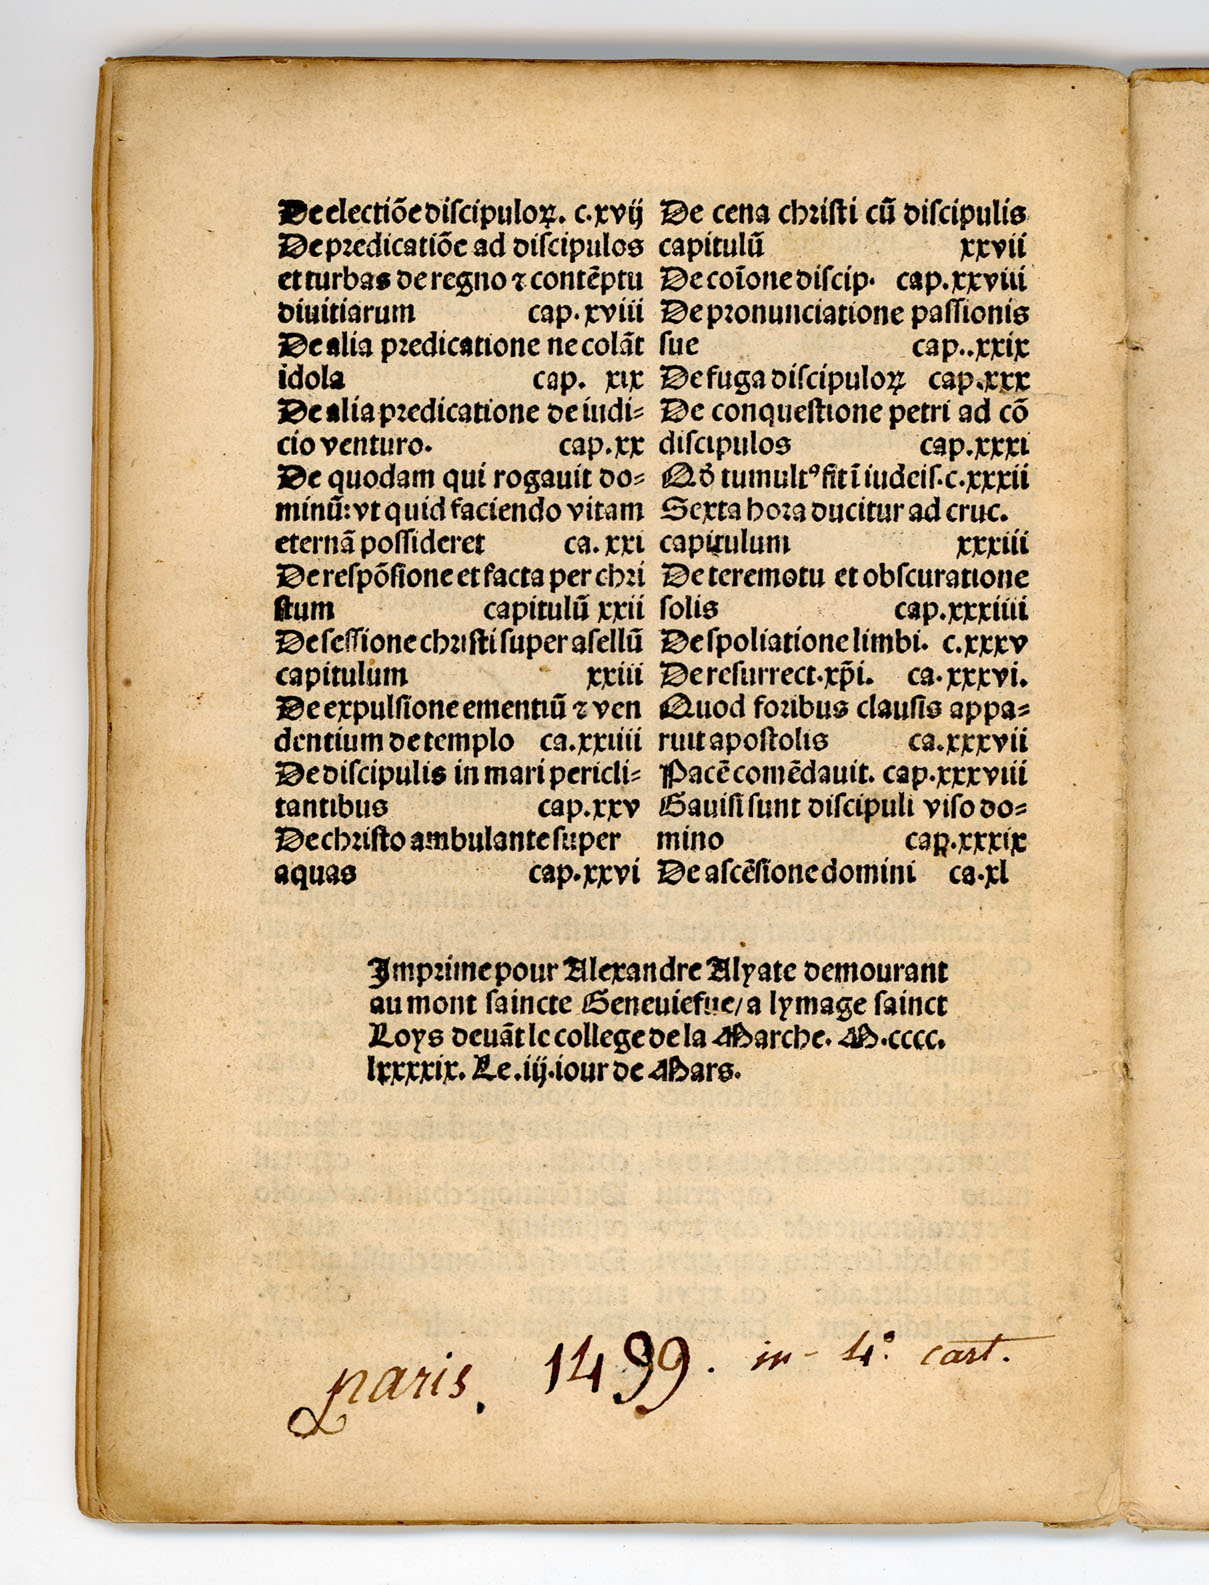 De electiõe discipuloꝝ. c.xvij
De predicatiõe ad discipulos
et turbas de regno ⁊ contẽptu
diuitiarum cap.xviii
De alia predicatione ne colãt
idola cap. xix
De alia predicatione de iudi⸗
cio venturo. cap.xx
De quodam qui rogauit do⸗
minũ: vt quid faciendo vitam
eternã possideret ca. xxi
De respõsione et facta per chri
stum capitulũ xxii
De sessione christi super asellũ
capitulum xxiii
De expulsione ementiũ ⁊ ven
dentium de templo ca.xxiiii
De discipulis in mari pericli⸗
tantibus cap.xxv
De christo ambulante super
aquas cap.xxvi
De cena christi cũ discipulis
capitulũ xxvii
De coĩone discip. cap.xxviii
De pronunciatione passionis
sue cap..xxix
De fuga discipuloꝝ cap.xxx
De conquestione petri ad cõ
discipulos cap.xxxi
Qđ tumultꝰ fit ĩ iudeis.c.xxxii
Sexta hora ducitur ad cruc.
capitulum xxxiii
De teremotu et obscuratione
solis cap.xxxiiii
De spoliatione limbi. c.xxxv
De resurrect.xp̃i. ca.xxxvi.
Quod foribus clausis appa⸗
ruit apostolis ca.xxxvii
Pacẽ comẽdauit. cap.xxxviii
Gauisi sunt discipuli viso do⸗
mino cap.xxxix
De ascẽsione domini ca.xl
Imprime pour Alexandre Alyate demourant
au mont saincte Geneuiefue/a lymage sainct
Loys deuãt le college de la Marche. M.cccc.
lxxxxix. Le.iij.iour de Mars.
paris. 1499. in-4.° cart.